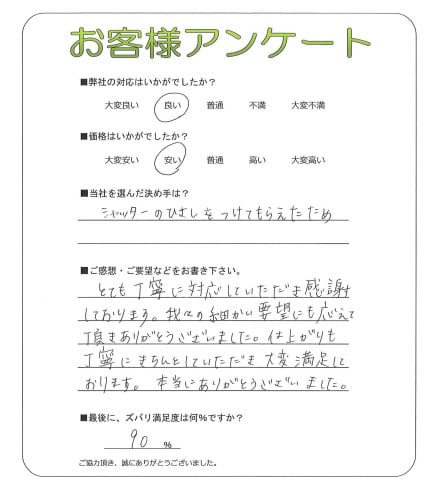 お客様アンケート
■弊社の対応はいかがでしたか？
大変良い 良い 普通 不満 大変不満
■価格はいかがでしたか？
大変安い 安い 普通 高い 大変高い
■当社を選んだ決め手は？
シャッターのひさしをつけてもらえたため
■ご感想・ご要望などをお書き下さい。
とても丁寧に対応していただき感謝
しております。我々の細かい要望にも応えて
頂きありがとうございました。仕上がりも
丁寧にきちんとしていただき大変満足して
おります。本当にありがとうございました。
■最後に、ズバリ満足度は何％ですか？
90 ％
ご協力頂き、誠にありがとうございました。